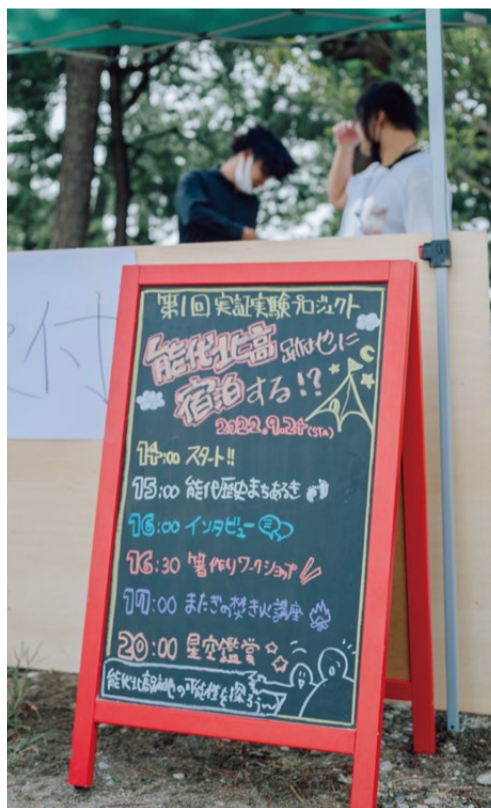 付
第1回 実証実験プロジェクト
能代北高 跡地に
宿泊する!?
2022.9.24(STA)
14:00 スタート!!
15:00 能代歴史まちあるき
16:00 インタビュー
16:30 箸作りワークショップ
17:00 またぎの焚き火講座
20:00 星空鑑賞
能代北高跡地の可能性を探ろう